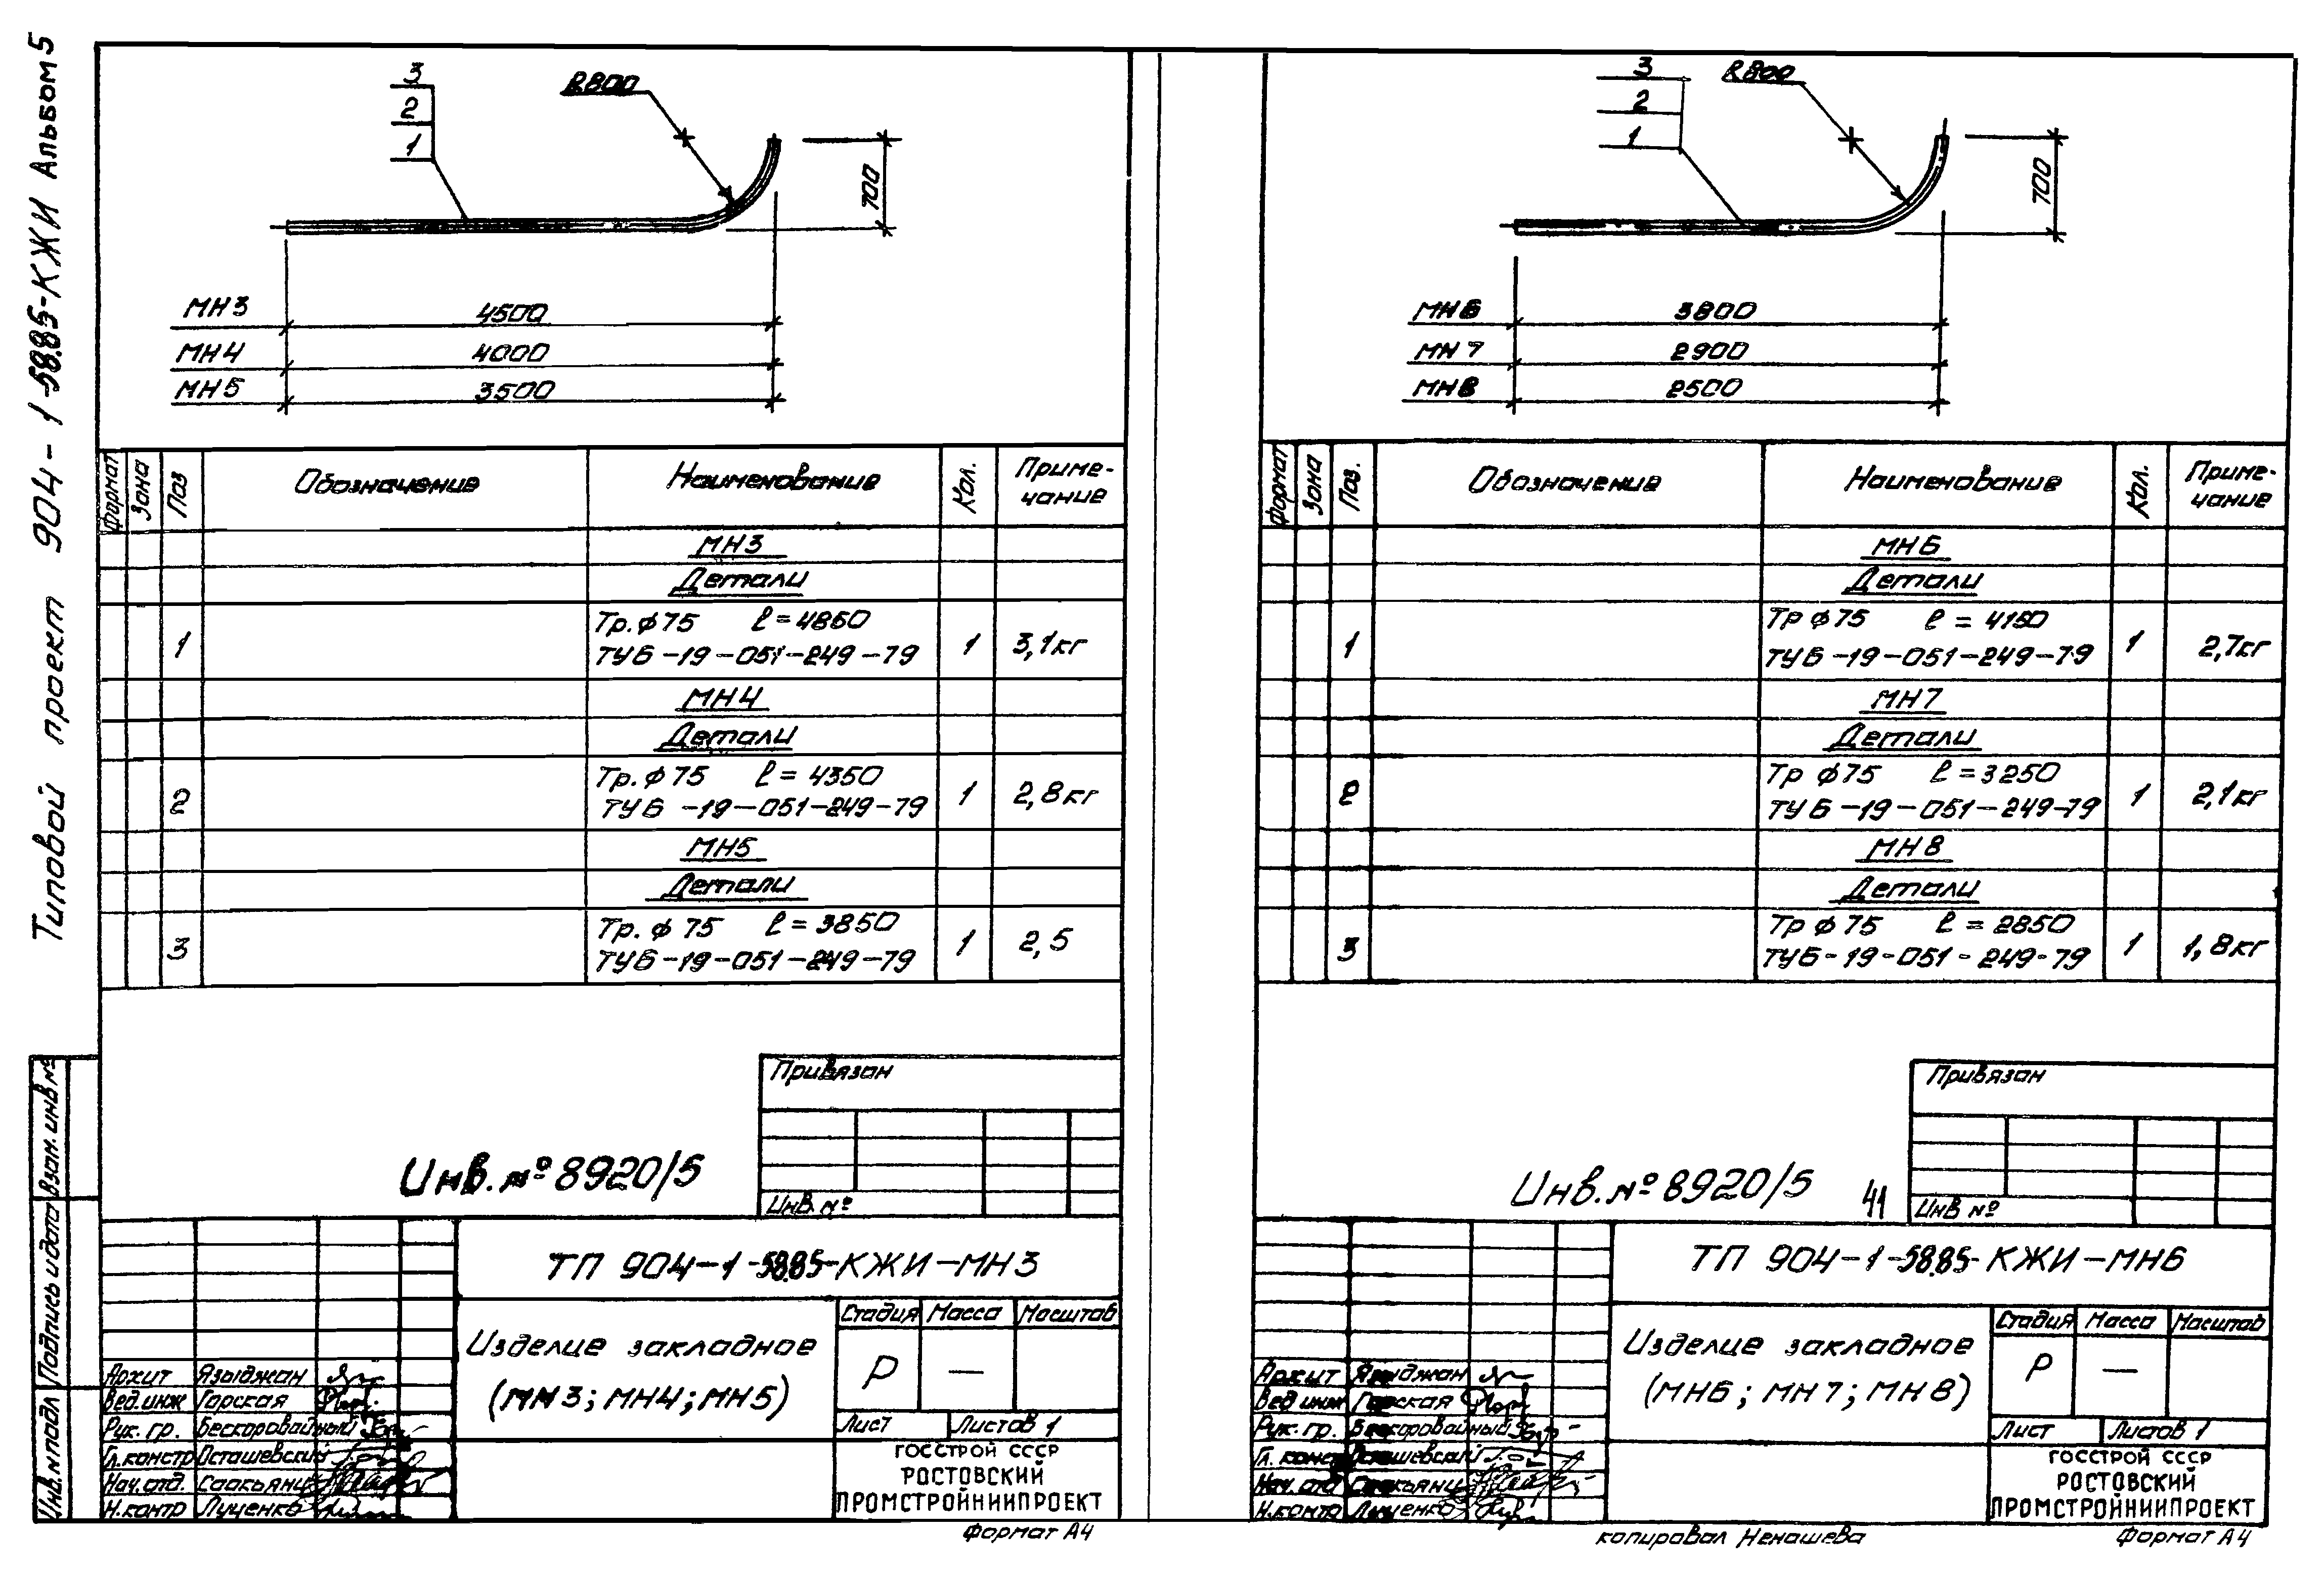 Типовой проект 904-1-58.85-КЖИ Альбом 5
3
2
1
R800
700
МН3 4500
МН4 4000
МН5 3500
Формат Зона Поз Обозначение Наименование Кол. Приме-
чание
МН3
Детали
1 Тр. ф 75 ℓ = 4850 1 3,1кг
ТУ6-19-051-249-79
МН4
Детали
2 Тр. ф 75 ℓ = 4350 1 2,8кг
ТУ6-19-051-249-79
МН5
Детали
3 Тр. ф 75 ℓ = 3850 1 2,5
ТУ6-19-051-249-79
Привязан
Инв. №
Инв. № 8920/5
Инв. № подл Подпись и дата Взам. инв №
ТП 904-1-58.85-КЖИ-МН3
Изделие закладное
(МН3; МН4; МН5)
Стадия Масса Масштаб
Р —
Лист Листов 1
ГОССТРОЙ СССР
РОСТОВСКИЙ
ПРОМСТРОЙНИИПРОЕКТ
Архит Языджан
Вед. инж Горская
Рук. гр. Бескоровайный
Гл. констр Осташевский
Нач. отд. Саакьянц
Н. контр Луценко
Формат А4
3
2
1
R800
700
МН6 3800
МН7 2900
МН8 2500
Формат Зона Поз. Обозначение Наименование Кол. Приме-
чание
МН6
Детали
1 Тр ф 75 ℓ = 4150 1 2,7кг
ТУ6-19-051-249-79
МН7
Детали
2 Тр ф 75 ℓ = 3250 1 2,1кг
ТУ6-19-051-249-79
МН8
Детали
3 Тр ф 75 ℓ = 2850 1 1,8кг
ТУ6-19-051-249-79
Привязан
Инв №
Инв. № 8920/5 41
ТП 904-1-58.85-КЖИ-МН6
Изделие закладное
(МН6; МН7; МН8)
Стадия Масса Масштаб
Р —
Лист Листов 1
ГОССТРОЙ СССР
РОСТОВСКИЙ
ПРОМСТРОЙНИИПРОЕКТ
Архит Языджан
Вед инж Горская
Рук. гр. Бескоровайный
Гл. констр Осташевский
Нач. отд Саакьянц
Н. контр Луценко
копировал Ненашева
Формат А4